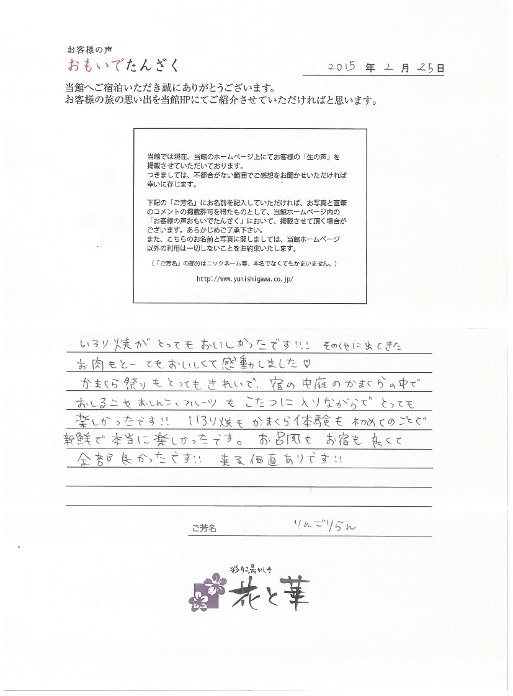 お客様の声
おもいでたんざく
2015 年 2 月 25日
当館へご宿泊いただき誠にありがとうございます。
お客様の旅の思い出を当館HPにてご紹介させていただければと思います。
当館では現在、当館のホームページ上にてお客様の「生の声」を
掲載させていただいております。
つきましては、不都合がない範囲でご感想をお聞かせいただければ
幸いに存じます。
下記の「ご芳名」にお名前を記入していただければ、お写真と直筆
のコメントの掲載許可を得たものとして、当館ホームページ内の
「お客様の声おもいでたんざく」において、掲載させて頂く場合が
ございます。あらかじめご了承下さい。
また、こちらのお名前と写真に関しましては、当館ホームページ
以外の利用は一切しないことをお約束いたします。
(「ご芳名」の部分はニックネーム等、本名でなくてもかまいません。)
http://www.yunishigawa.co.jp/
いろり焼がとってもおいしかったです!!! その他に出てきた
お肉もとーてもおいしくて感動しました♡
かまくら祭りもとてもきれいで、宿の中庭のかまくらの中で
おしるこやおしんこ、フルーツ も こたつに入りながらで とっても
楽しかったです!! いろり焼もかまくら体験も初めてのことで
新鮮で本当に楽しかったです。 お呂風も お宿も 良くて
全部良かったです!! 来る価値ありです!!
ご芳名 りんごりらん
彩り湯かしき
花と華